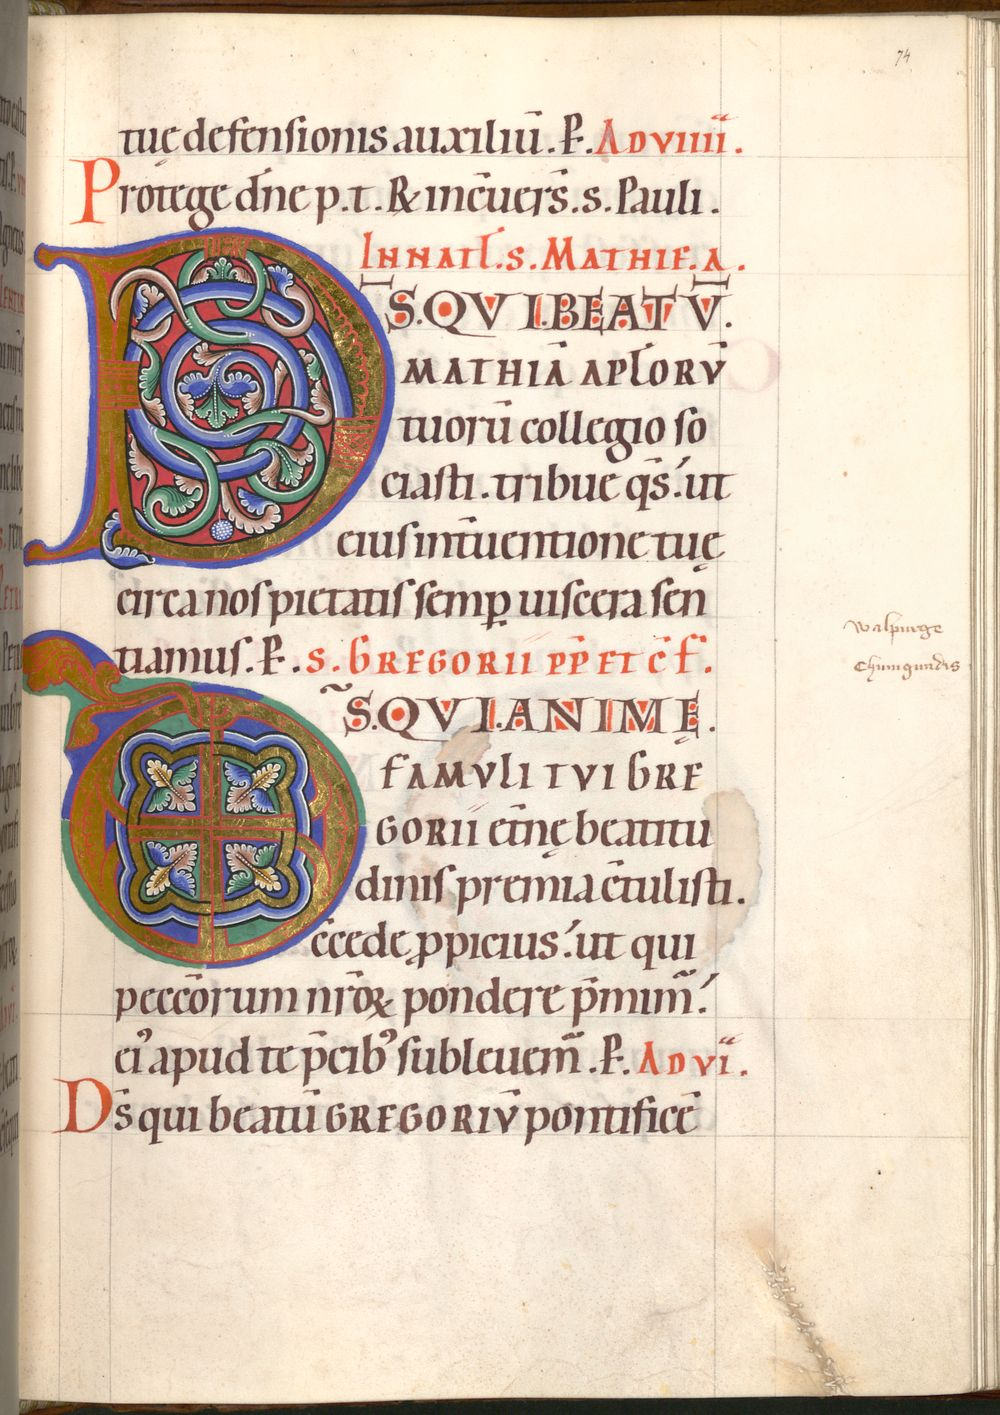 74
tuę defensionis auxiliū. P. AD VIIII.
Protege dn̄e p. t. R in c̄uers̄. s. Pauli.
IN NATL. S. MATHIE. A.
DS̄. QVI. BEATV̄.
MATHIĀ APLORV̄
tuorū collegio so
ciasti. tribue qs̄. ut
eius int̄uentione tuę
circa nos pietatis semp uiscera sen
tiamus. P. S. GREGORII PP̄ ET C̄F.
DS̄. QVI. ANIMĘ.
FAMVLI TVI GRE
GORII et̄nę beatitu
dinis premia c̄tulisti.
c̄cede ppicius. ut qui
pecc̄orum nr̄oꝝ pondere p̄mim̄.
ei᾽ apud te p̄cib᾽ subleuem̄. P. AD VI.
Ds̄ qui beatū GREGORIV̄ pontificē
walpurge
Chunigundis